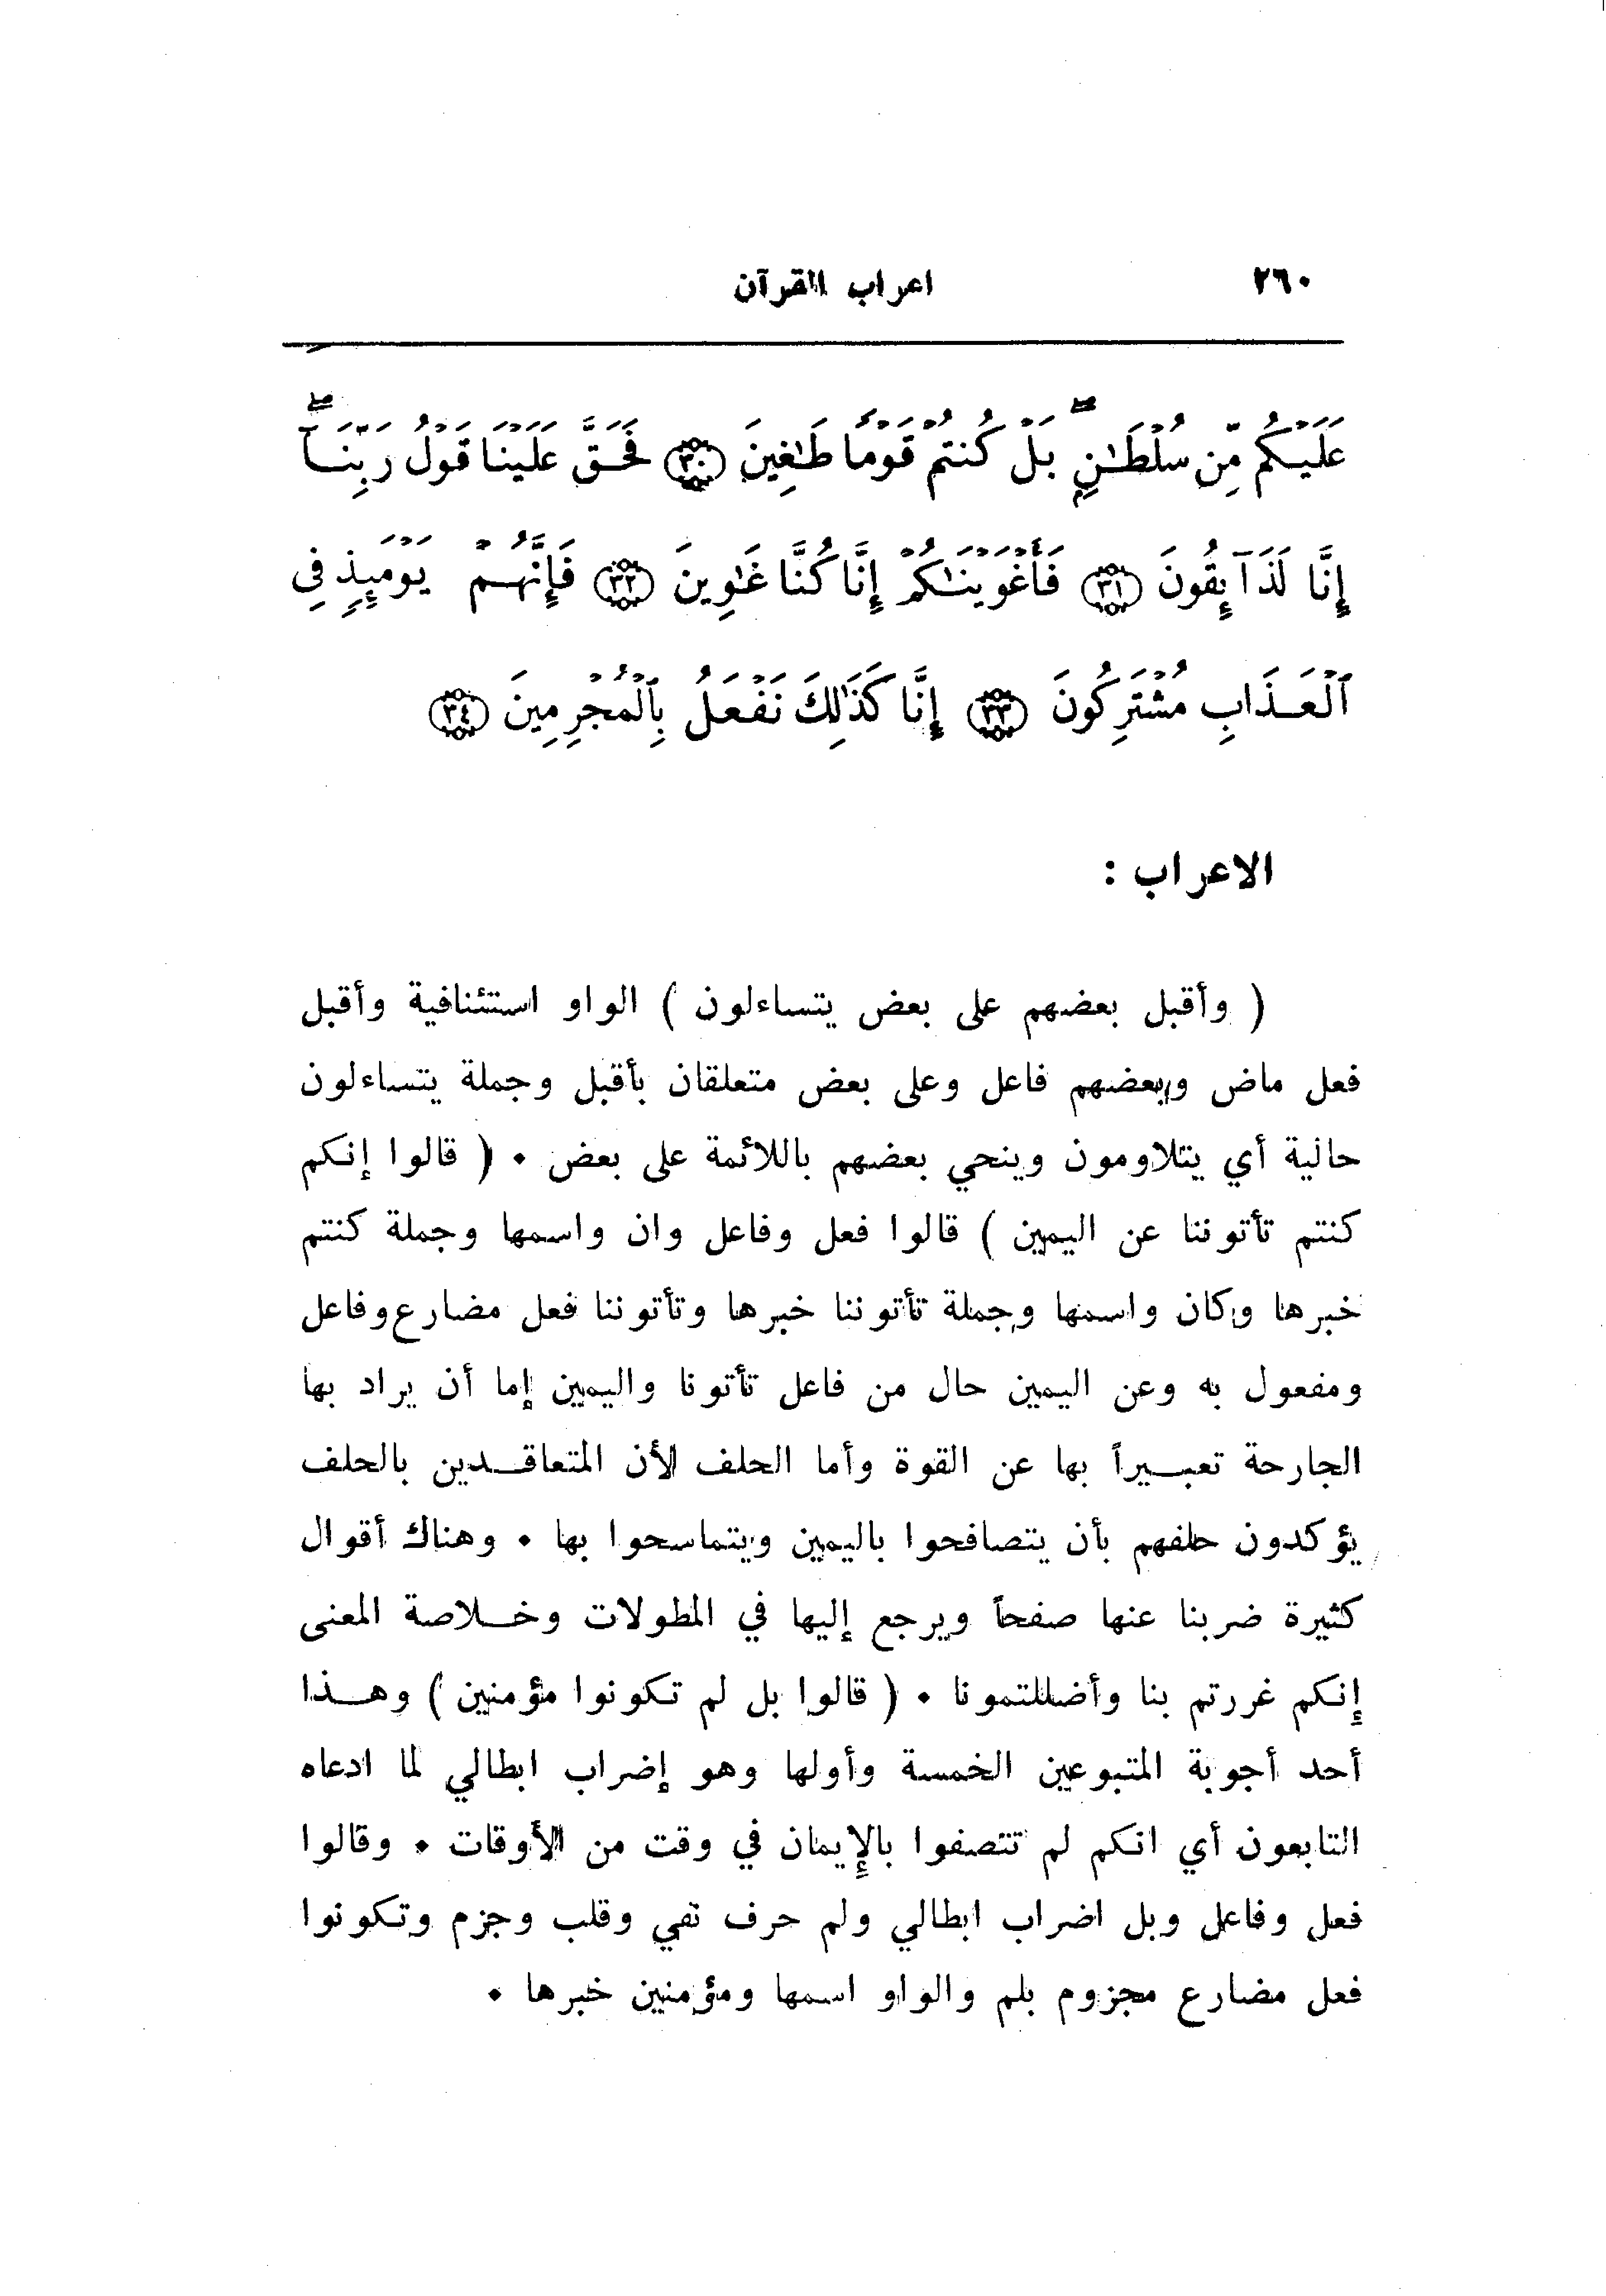 ٢٦٠ اعراب القرآن
عَلَيْكُم مِّن سُلْطَٰنٍۭ ۖ بَلْ كُنتُمْ قَوْمًا طَٰغِينَ ﴿٣٠﴾ فَحَقَّ عَلَيْنَا قَوْلُ رَبِّنَآ ۖ
إِنَّا لَذَآئِقُونَ ﴿٣١﴾ فَأَغْوَيْنَٰكُمْ إِنَّا كُنَّا غَٰوِينَ ﴿٣٢﴾ فَإِنَّهُمْ يَوْمَئِذٍ فِي
ٱلْعَذَابِ مُشْتَرِكُونَ ﴿٣٣﴾ إِنَّا كَذَٰلِكَ نَفْعَلُ بِٱلْمُجْرِمِينَ ﴿٣٤﴾
الاعراب :
( وأقبل بعضهم على بعض يتساءلون ) الواو استئنافية وأقبل
فعل ماض وبعضهم فاعل وعلى بعض متعلقان بأقبل وجملة يتساءلون
حالية أي يتلاومون وينحي بعضهم باللائمة على بعض . ( قالوا إنكم
كنتم تأتوننا عن اليمين ) قالوا فعل وفاعل وان واسمها وجملة كنتم
خبرها وكان واسمها وجملة تأتوننا خبرها وتأتوننا فعل مضارع وفاعل
ومفعول به وعن اليمين حال من فاعل تأتونا واليمين إما أن يراد بها
الجارحة تعبيراً بها عن القوة وأما الحلف لأن المتعاقدين بالحلف
يؤكدون حلفهم بأن يتصافحوا باليمين ويتماسحوا بها . وهناك أقوال
كثيرة ضربنا عنها صفحاً ويرجع إليها في المطولات وخلاصة المعنى
إنكم غررتم بنا وأضللتمونا . ( قالوا بل لم تكونوا مؤمنين ) وهذا
أحد أجوبة المتبوعين الخمسة وأولها وهو إضراب ابطالي لما ادعاه
التابعون أي انكم لم تتصفوا بالإيمان في وقت من الأوقات . وقالوا
فعل وفاعل وبل اضراب ابطالي ولم حرف نفي وقلب وجزم وتكونوا
فعل مضارع مجزوم بلم والواو اسمها ومؤمنين خبرها .